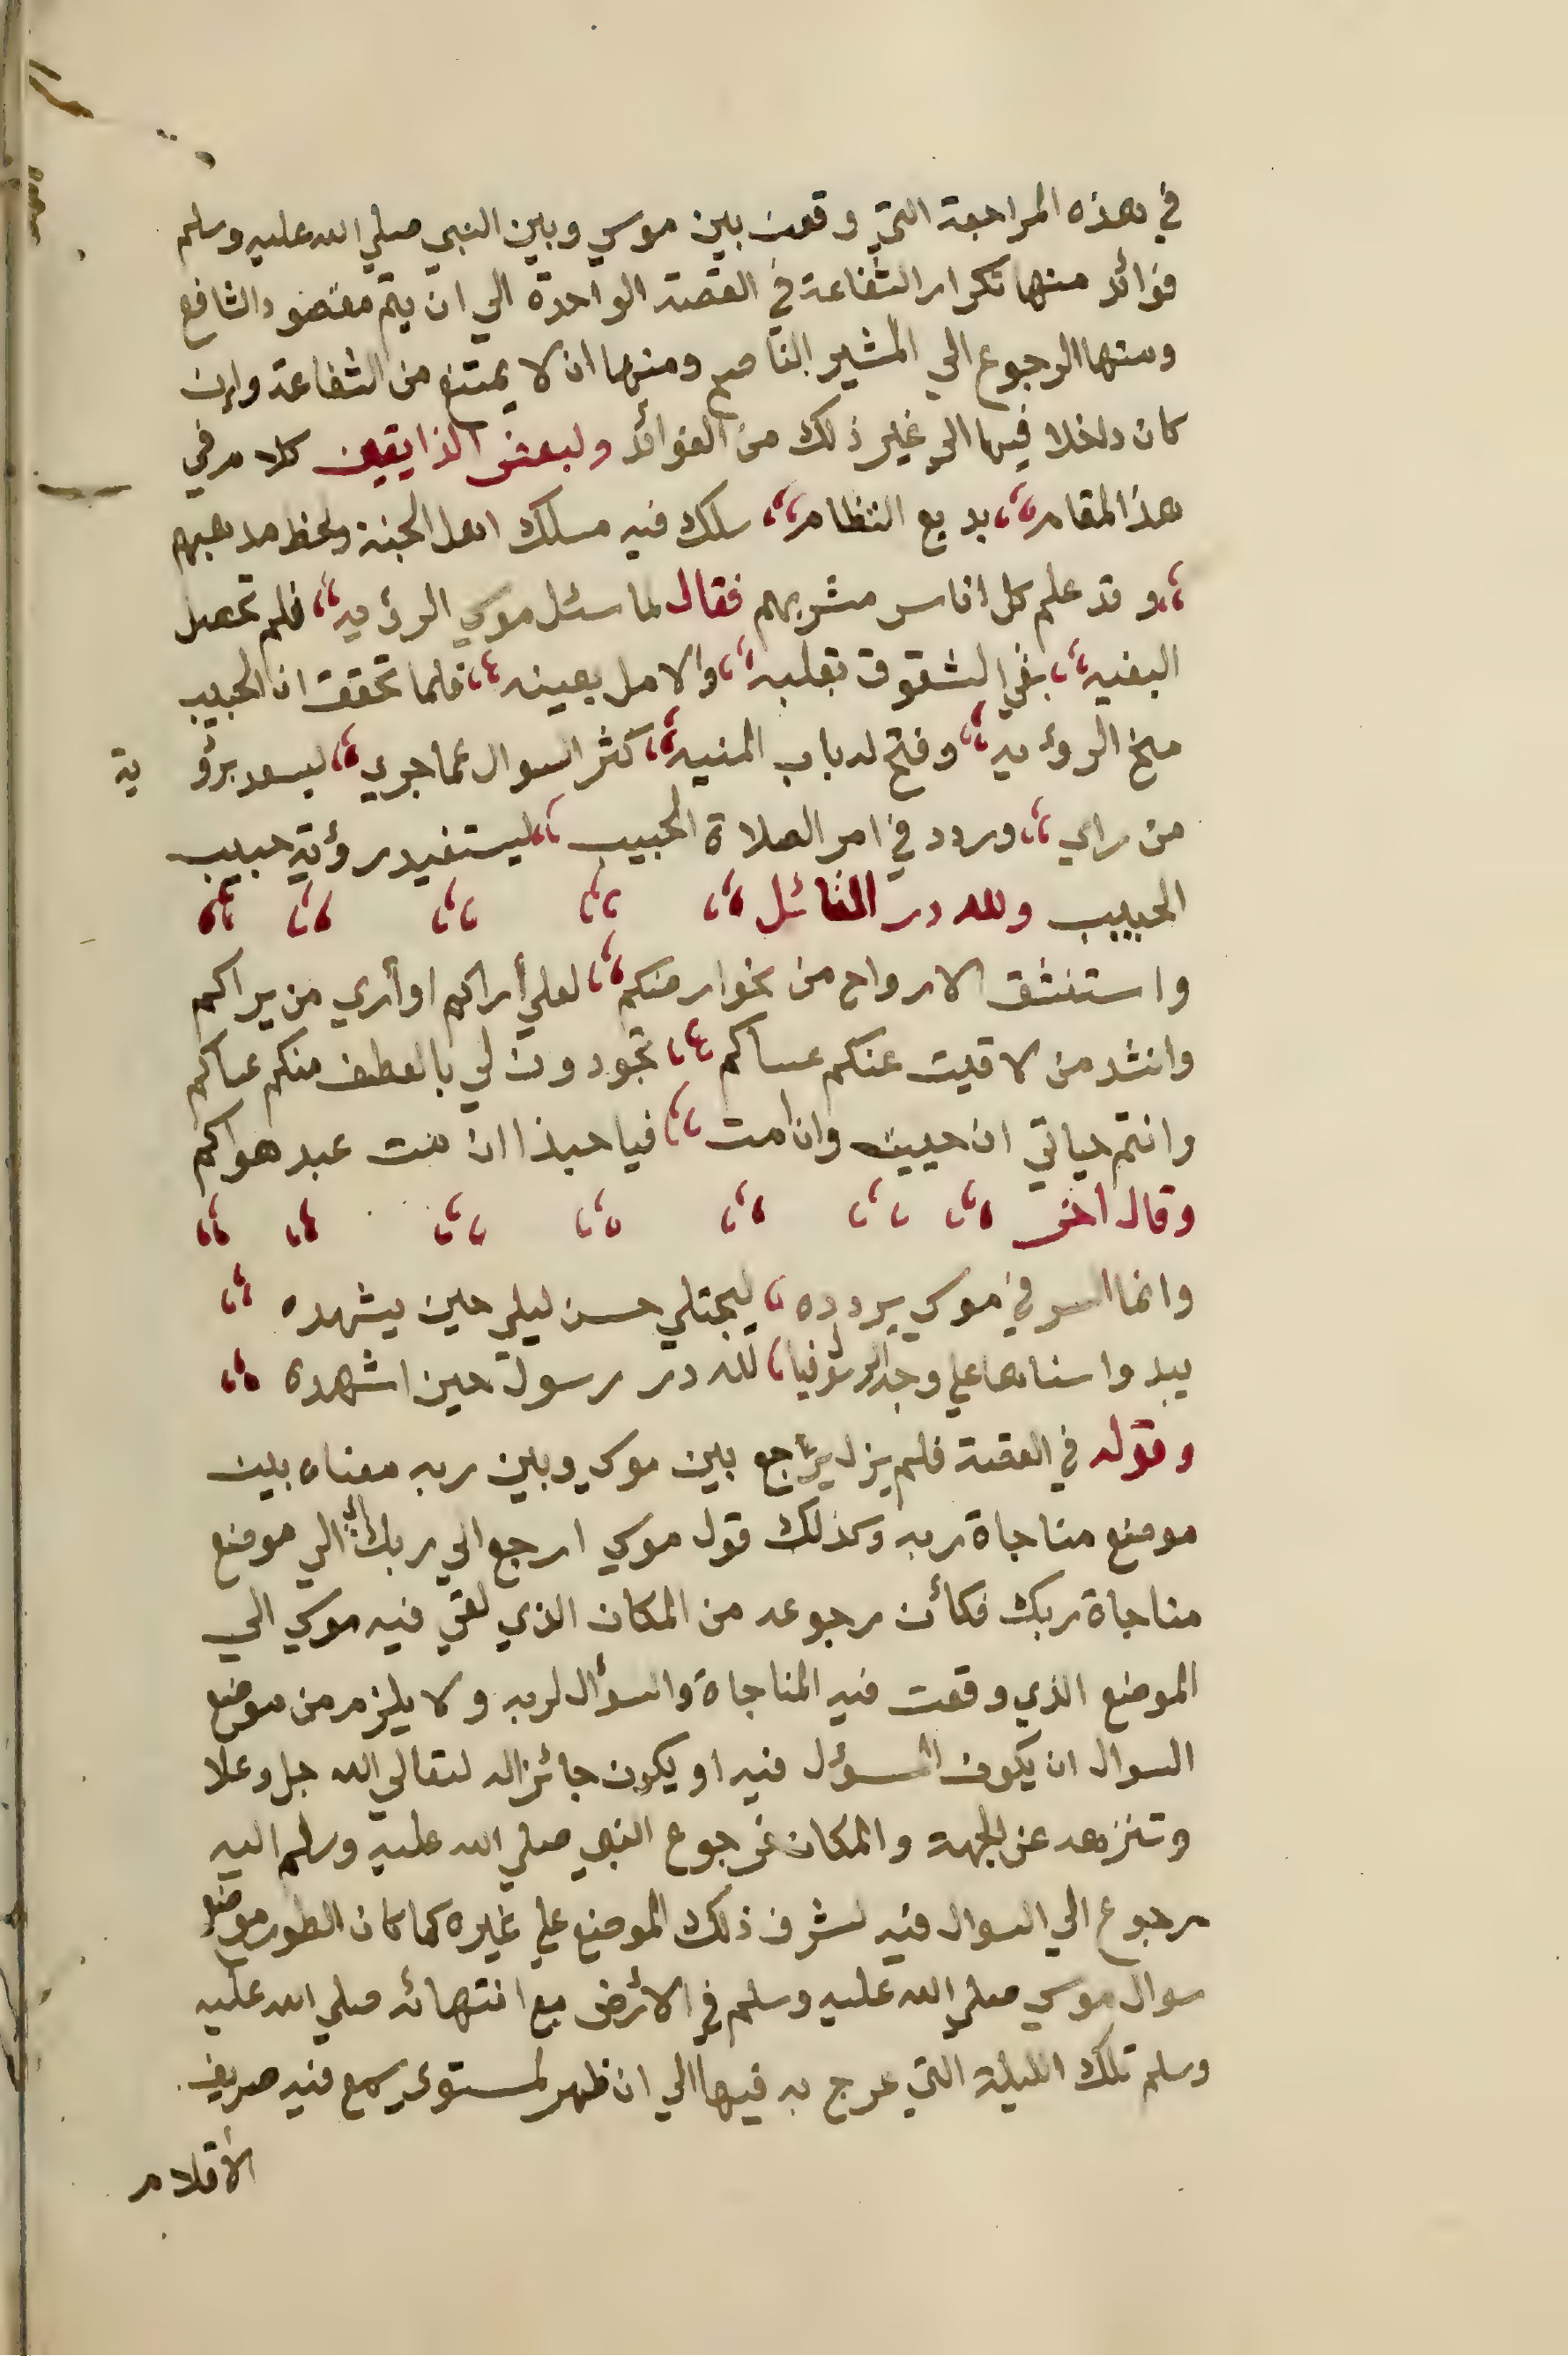 في هذه المراجعة التي وقعت بين موسي وبين النبي صلي الله عليه وسلم
فوائد منها تكرار الشفاعة في القصة الواحدة الي ان يتم مقصود الشافع
ومنها الرجوع الي المشير الناصح ومنها ان لا يمتنع من الشفاعة وان
كان داخلا فيها الي غير ذلك من الفوائد ولبعض الذايقين كلام في
هذا المقام،، بديع النظام،، سلك فيه مسلك اهل المحبة ولحظ مذهبهم
،،وقد علم كل اناس مشربهم فقال لما سئل موسي الرؤيه،، فلم تحصل
البغيه،، بقي الشوق بقلبه،، والامل بعينه،، فلما تحقق ان الحبيب
منح الرؤيه،، وفتح له باب المنيه،، كثر السوال عما جري،، ليسعد برؤية
من راي،، وردد في امر الصلاة الحبيب،، ليستفيد رؤية حبيب
الحبيب ولله در القائل،، ،، ،، ،، ،،
واستنشق الارواح من نحو ارضكم،، لعلي أراكم او أري من يراكم
وانشد من لاقيت عنكم عساكم،، تجودون لي بالعطف منكم عساكم
وانتم حياتي ان حييت وان امت،، فيا حبذا ان مت عبد هواكم
وقال اخر،، ،، ،، ،، ،، ،، ،،
وانما السر في موسي يردده،، ليجتلي حسن ليلي حين يشهده،،
يبدوا سناها علي وجه الرسول فيا،، لله در رسول حين اشهده،،
وقوله في القصة فلم يزل يراجع بين موسي وبين ربه معناه بين
موضع مناجاة ربه وكذلك قول موسي ارجع الي ربك أي الي موضع
مناجاة ربك فكأن رجوعه من المكان الذي لقي فيه موسي الي
الموضع الذي وقعت فيه المناجاة والسؤال لربه ولا يلزم من موضع
السوال ان يكون المسؤل فيه او يكون جائزا له لتعالي الله جل وعلا
وتنزهه عن الجهة والمكان فرجوع النبي صلي الله عليه وسلم اليه
رجوع الي السوال فيه لشرف ذلك الموضع علي غيره كما كان الطور موضع
سوال موسي صلي الله عليه وسلم في الأرض مع انتهائه صلي الله عليه
وسلم تلك الليلة التي عرج به فيها الي ان ظهر لمستوي سمع فيه صريف
الأقلام